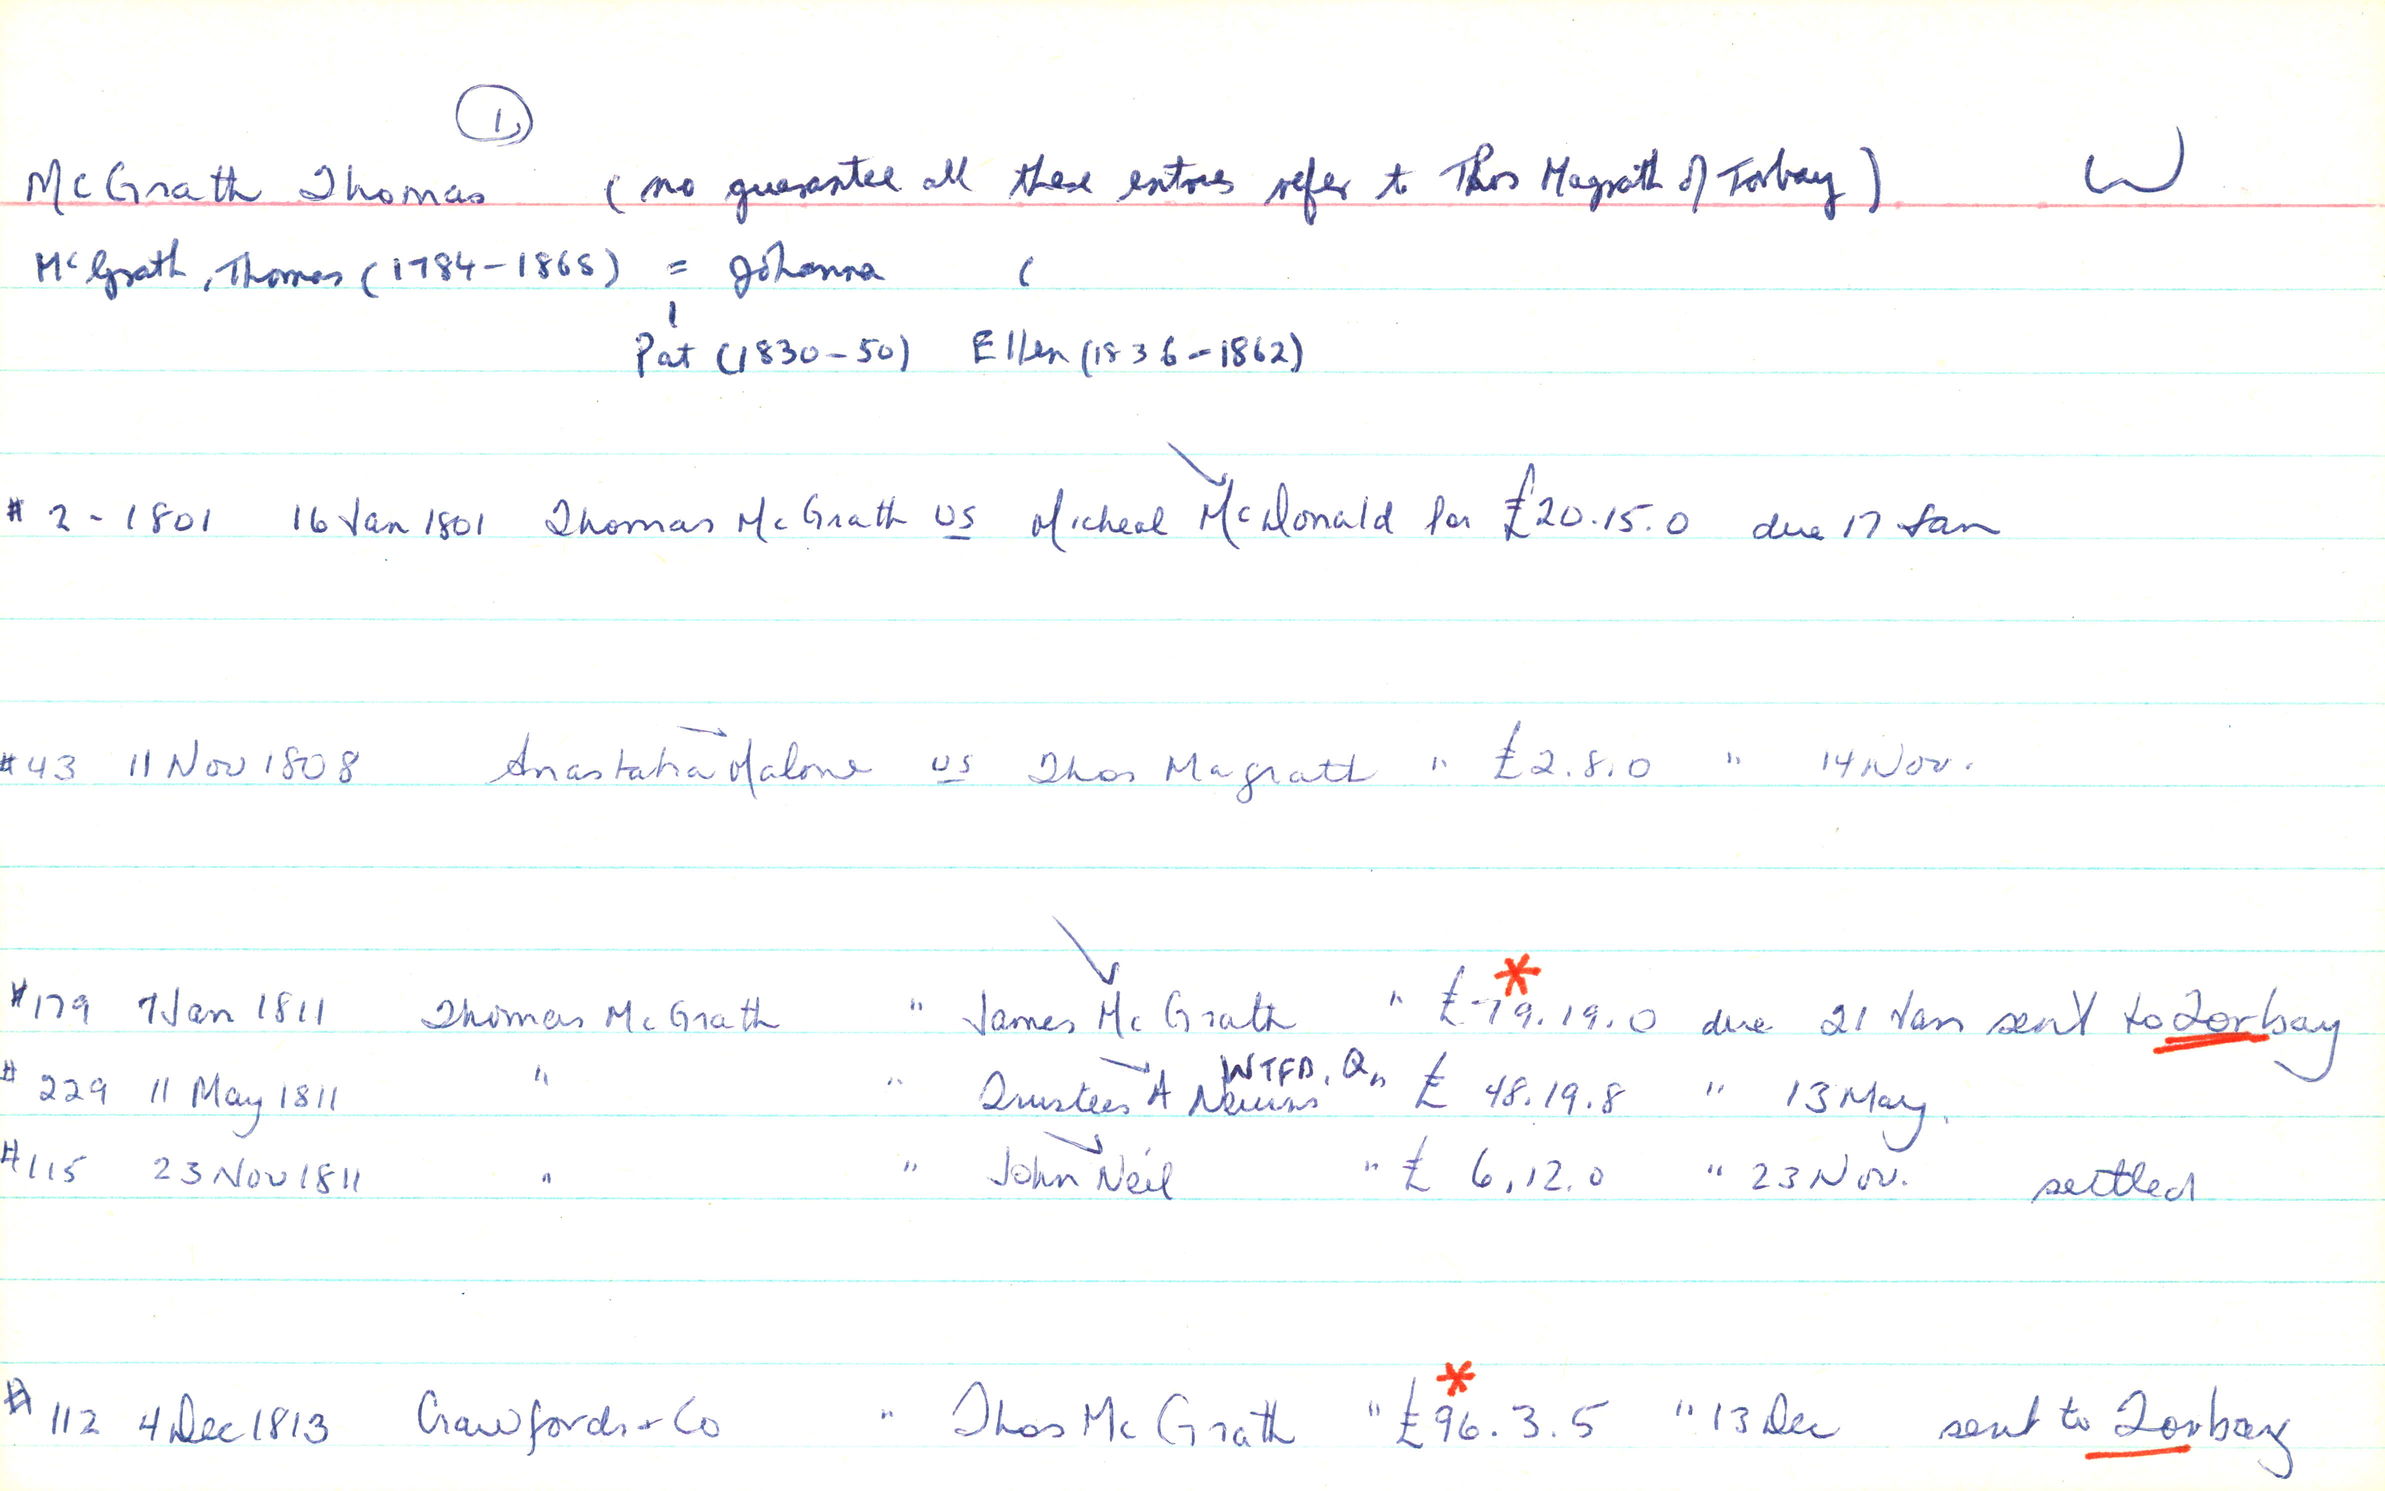 1.
McGrath Thomas (no guarantee all these entries refer to Thos Magrath of Torbay) W
McGrath, Thomas (1784-1865) = Johanna (
Pat (1830-50) Ellen (1836-1862)
# 2 - 1801 16 Jan 1801 Thomas McGrath vs Micheal McDonald for £20.15.0 due 17 Jan
#43 11 Nov 1808 Anastatia Malone vs Thos Magrath " £2.8.0 " 14 Nov.
#179 7 Jan 1811 Thomas McGrath " James McGrath " £79.19.0 due 21 Jan sent to Torbay
WTFD, Q
# 229 11 May 1811 " " Trustees A " £ 48.19.8 " 13 May.
#115 23 Nov 1811 " " John Neil " £ 6.12.0 " 23 Nov. settled
# 112 4 Dec 1813 Crawfords & Co " Thos McGrath " £96.3.5 " 13 Dec sent to Torbay